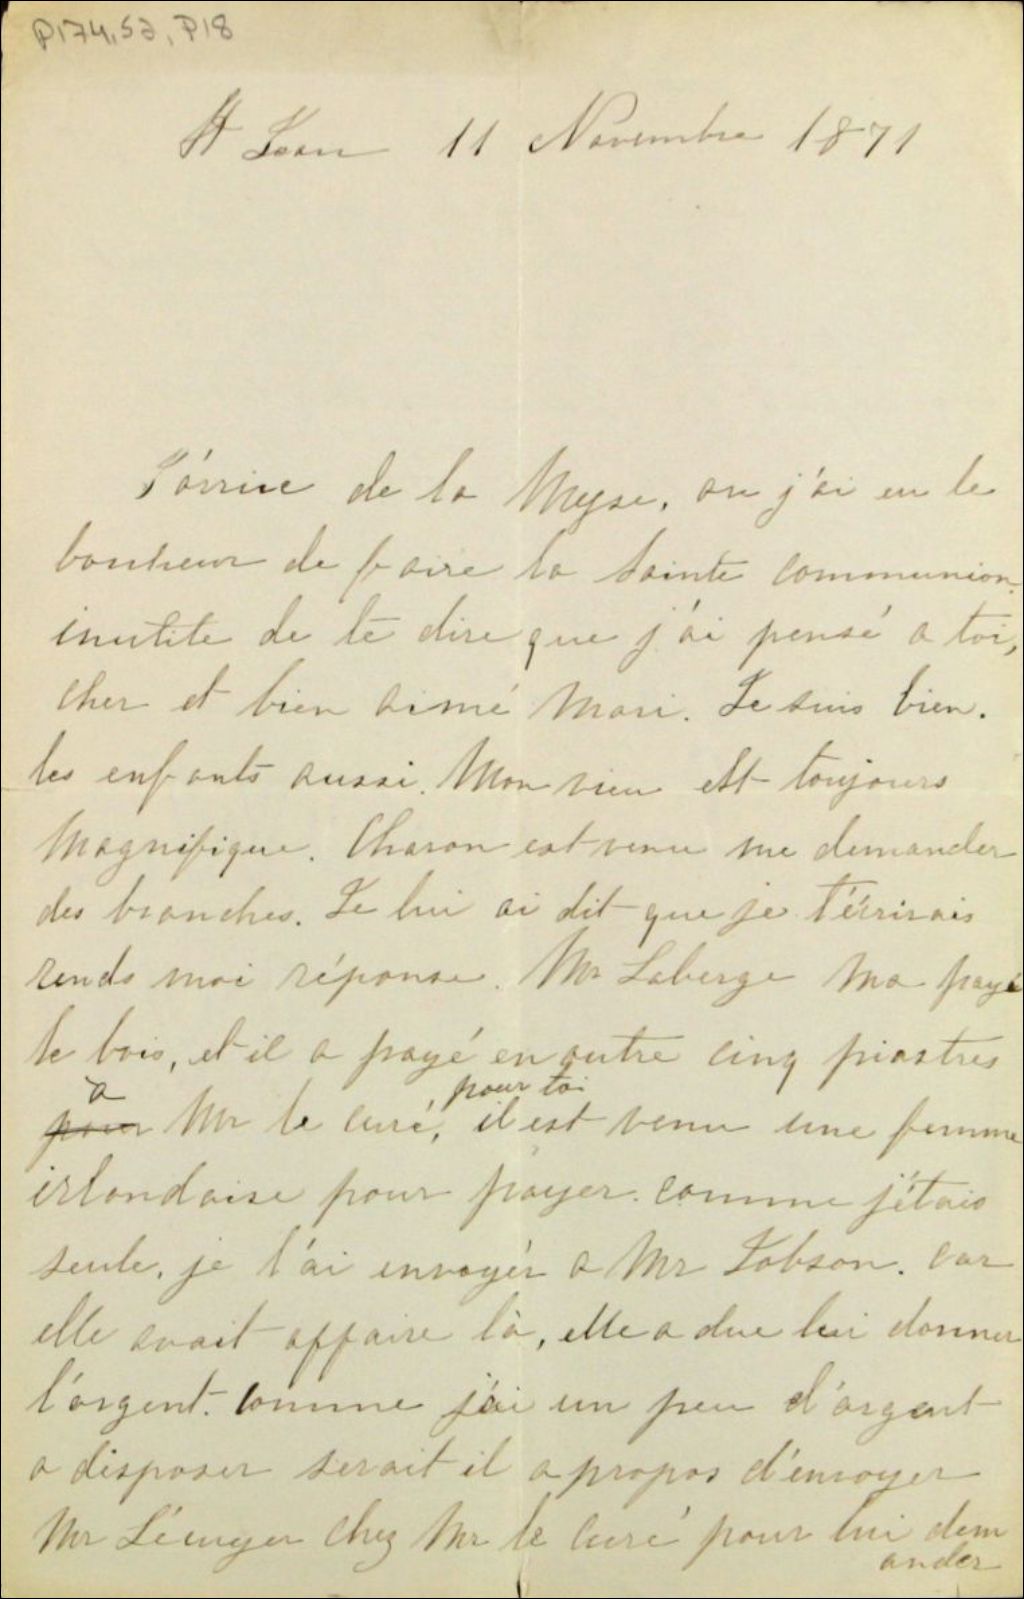 P174,S2,P18
St Jean 11 Novembre 1871
J'arrive de la Messe, ou j'ai eu le
bonheur de faire la Sainte communion.
inutile de te dire que j'ai pensé a toi,
cher et bien aimé Mari. Je suis bien.
les enfants aussi. Mon vieu est toujours
Magnifique. Charon est venu me demander
des branches. Je lui ai dit que je t'écrirais
rends moi réponse. Mr Laberge Ma payé
le bois, et il a payé en outre cinq piastres
à pour toi
pour Mr le curé, il est venu une femme
irlandaise pour payer. comme j'étais
seule, je l'ai envoyér a Mr Jobson. car
elle avait affaire là, elle a due lui donner
l'argent. comme j'ai un peu d'argent
a disposer serait il a propos d'envoyer
Mr chez Mr le curé pour lui dem
ander